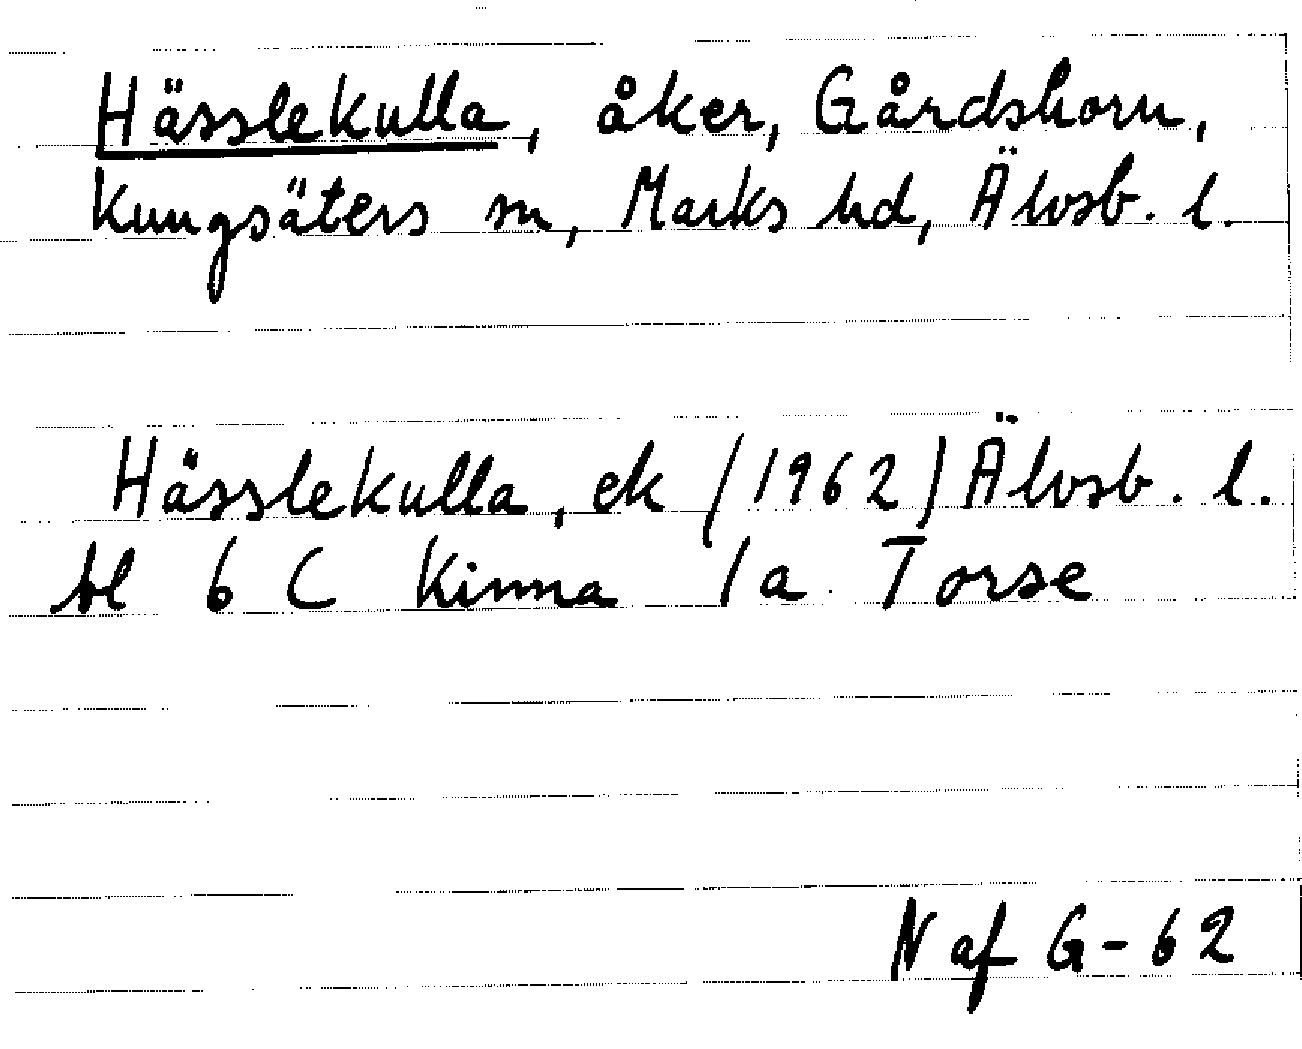 Hässlekulla, åker, Gårdshorn,
Kungsäters sn, Marks hd, Älvsb. l.
Hässlekulla, ek (1962) Älvsb. l.
bl 6 C Kinna 1a Torse
N af G-62